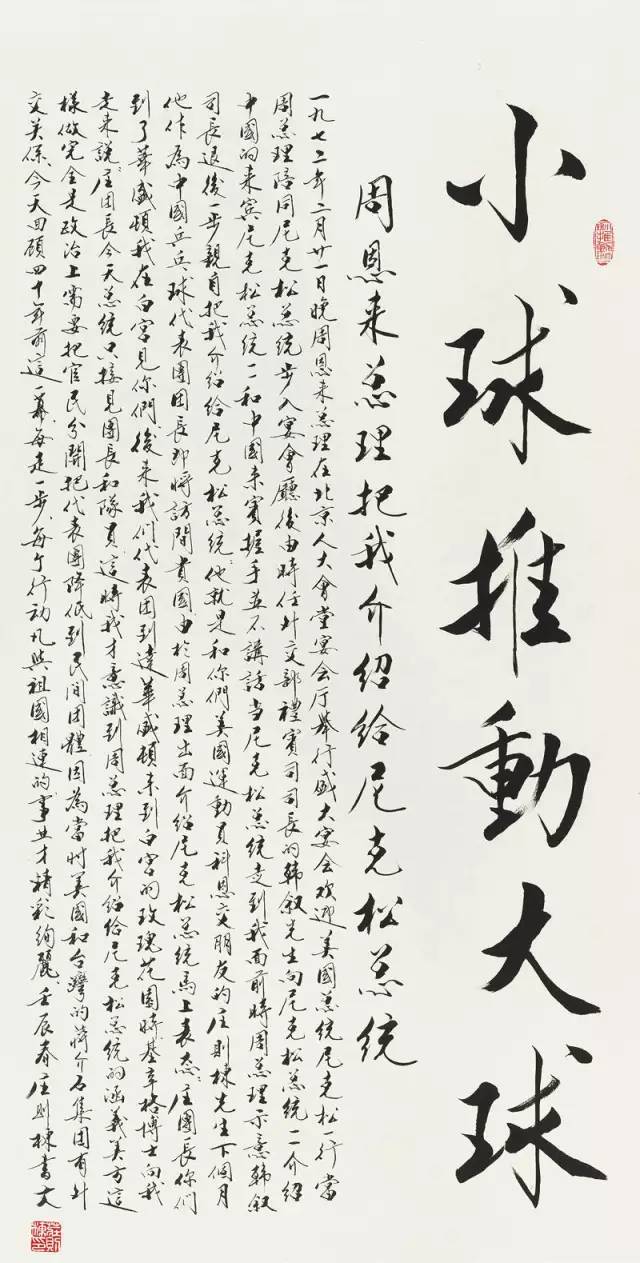 小球推動大球
周恩来总理把我介绍给尼克松总统
一九七二年二月廿一日晚周恩来总理在北京人大會堂宴会厅舉行盛大宴会欢迎美國总统尼克松一行當
周总理陪同尼克松总统步入宴會廳後由時任外交部禮賓司司長的韩叙先生向尼克松总统一一介绍
中國的来宾尼克松总统一一和中國来賓握手並不講話当尼克松总统走到我面前時周总理示意韩叙
司長退後一步親自把我介绍给尼克松总统他就是和你們美國運動員科恩交朋友的庄则棟先生下個月
他作為中國乒乓球代表團團長即将訪問貴國由於周总理出面介绍尼克松总统馬上表态庄團長你们
到了華盛頓我在白宫見你們後来我们代表团到達華盛頓来到白宫的玫瑰花園時基辛格博士向我
走来說庄团長今天总统只接見團長和隊員這時我才意識到周总理把我介绍给尼克松总统的涵義美方這
樣做完全是政治上需要把官民分開把代表團降低到民间团體因為當时美國和台灣的蒋介石集团有外
交关係今天回顾四十年前這一幕每走一步每个行动凡與祖國相連的事业才精彩絢麗壬辰春庄则棟書文